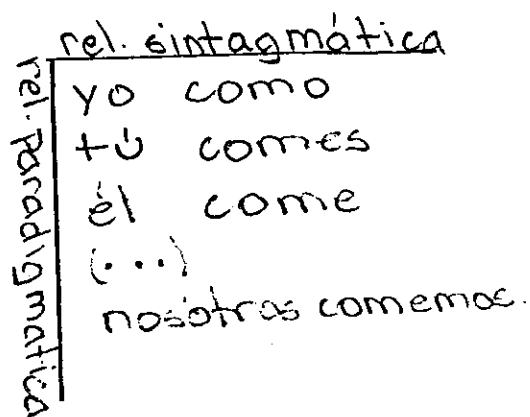 rel. sintagmática
rel. paradigmatica
yo como
tú comes
él come
(...)
nosotras comemos.